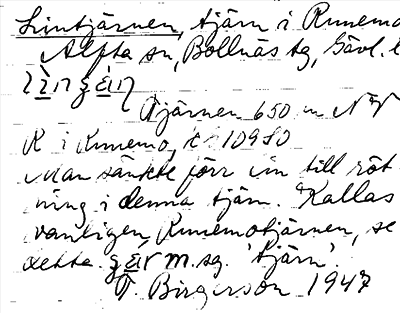 Lintjärnen, tjärn i Runemo
Alfta sn, Bollnäs tg, Gävl. l
Tjärnen 650 m NV
K i Runemo, k 10980
Man sänkte förr lin till röt-
ning i denna tjärn. Kallas
vanligen Runemotjärnen, se
detta. m. sg. 'tjärn'.
T. Birgerson 1947